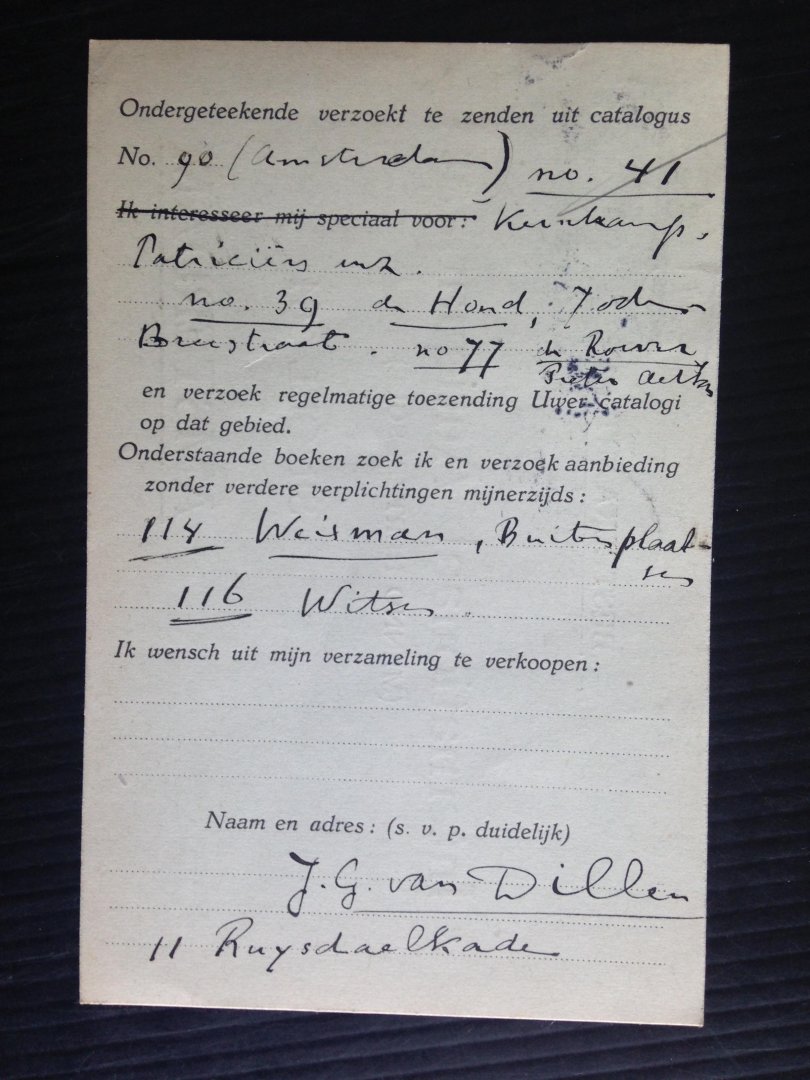 Ondergeteekende verzoekt te zenden uit catalogus
No. 90 (Amsterdam) no. 41
Ik interesseer mij speciaal voor: Kernkamp,
Patriciërs enz.
no. 39 de Hond, Joden
Breestraat. no 77 de Roever
Pieter Aertsz
en verzoek regelmatige toezending Uwer catalogi
op dat gebied.
Onderstaande boeken zoek ik en verzoek aanbieding
zonder verdere verplichtingen mijnerzijds:
114 Weisman, Buitenplaat-
sen
116 Witsen.
Ik wensch uit mijn verzameling te verkoopen:
Naam en adres: (s. v. p. duidelijk)
J. G. van Dillen
11 Ruysdaelkade